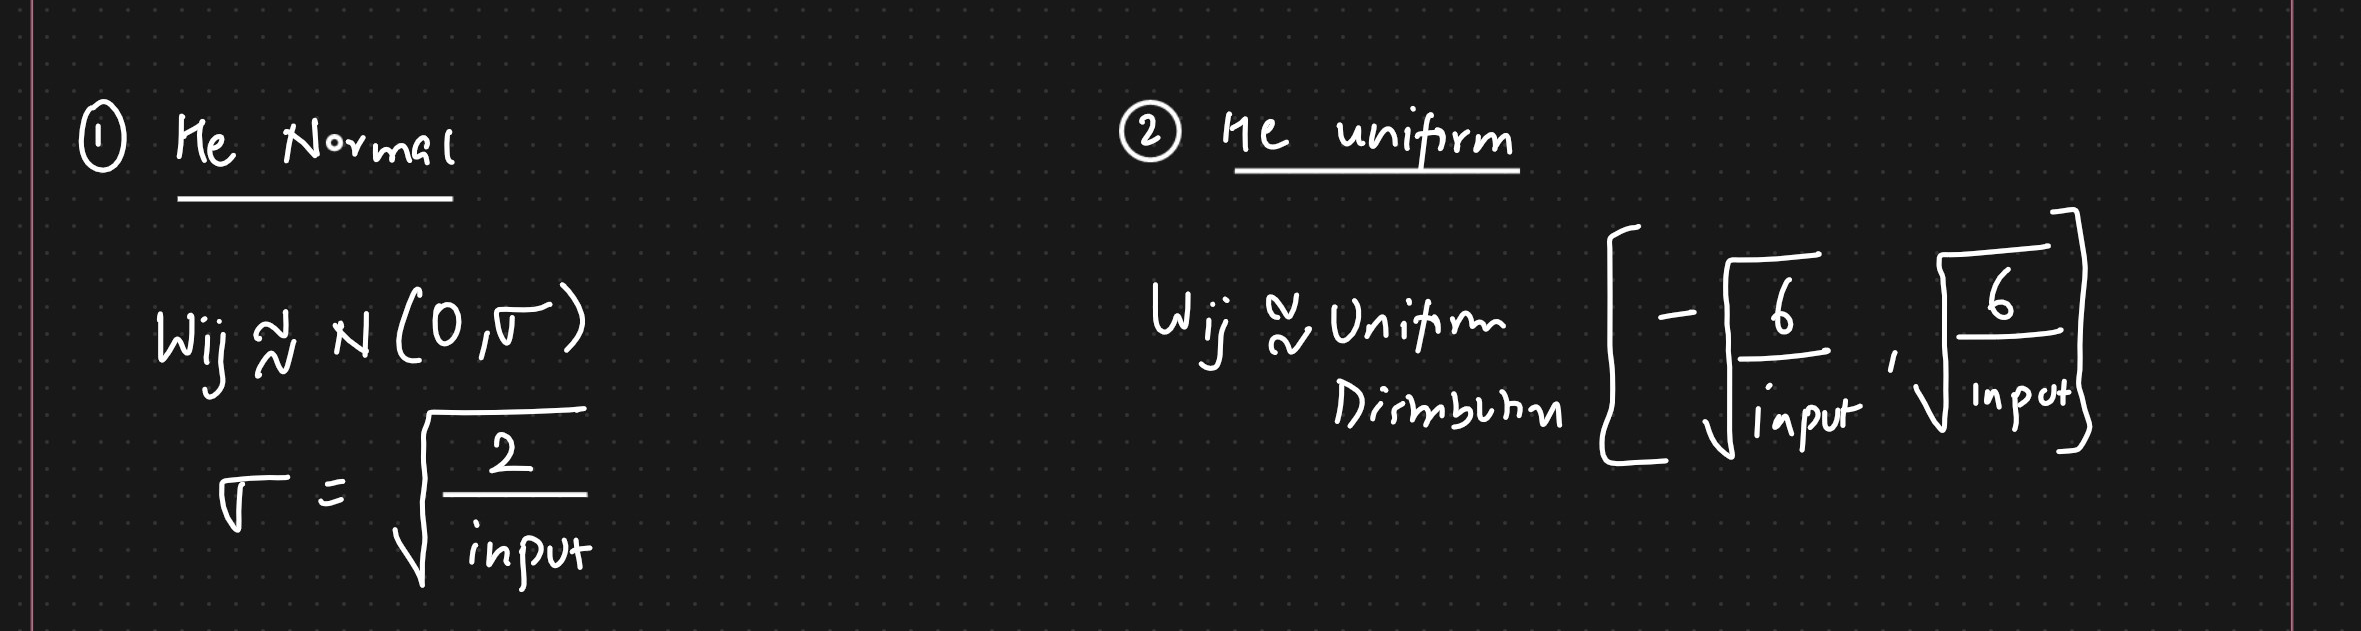 ① He Normal
Wij ≈ N (0, σ)
σ = √(2 / input)
② He uniform
Wij ≈ Uniform
Distribution [ - √(6 / input) , √(6 / input) ]